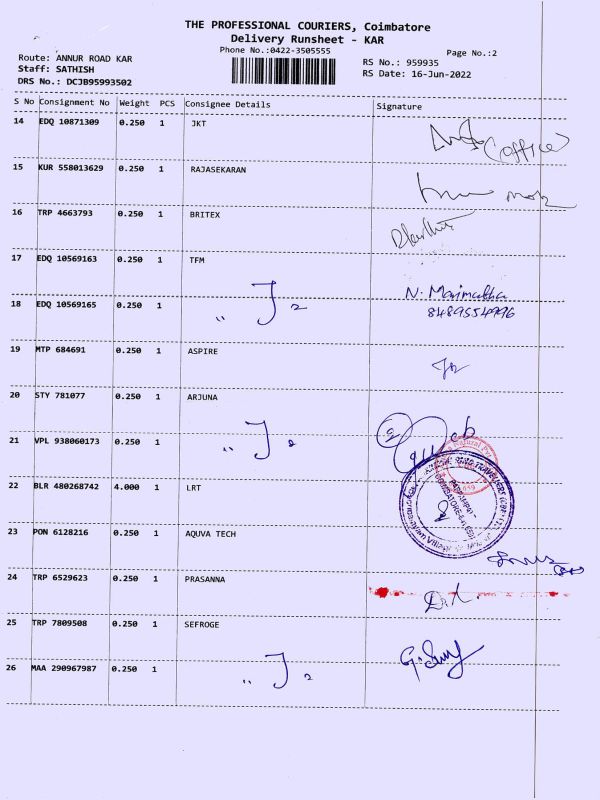 THE PROFESSIONAL COURIERS, Coimbatore
Delivery Runsheet - KAR
Phone No.:0422-3505555
Page No.:2
Route: ANNUR ROAD KAR
Staff: SATHISH
DRS No.: DCJB95993502
RS No.: 959935
RS Date: 16-Jun-2022
S No Consignment No Weight PCS Consignee Details Signature
14 EDQ 10871309 0.250 1 JKT
(office)
15 KUR 558013629 0.250 1 RAJASEKARAN
16 TRP 4663793 0.250 1 BRITEX
17 EDQ 10569163 0.250 1 TFM
N. Marimuthu
8489554996
18 EDQ 10569165 0.250 1
" J 2
19 MTP 684691 0.250 1 ASPIRE
20 STY 781077 0.250 1 ARJUNA
21 VPL 938060173 0.250 1
22 BLR 480268742 4.000 1 LRT
23 PON 6128216 0.250 1 AQUVA TECH
24 TRP 6529623 0.250 1 PRASANNA
25 TRP 7809508 0.250 1 SEFROGE
26 MAA 290967987 0.250 1
" J 2